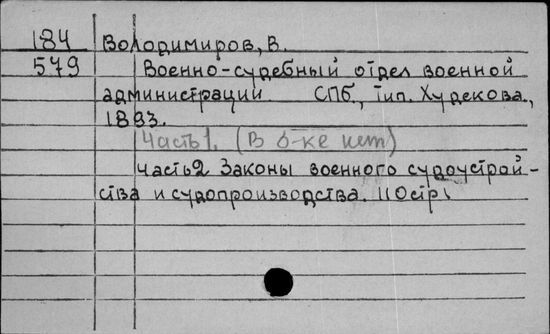 184 Володимиров, В.
579 Военно-судебный отдел военной
администрации СПб., Тип. Худекова.,
1893.
Часть 1. (В б-ке нет)
Часть 2 Законы военного судоустрой-
ства и судопроизводства. 110 стр.